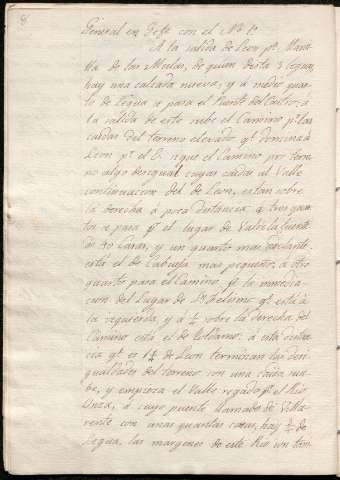 8
General en Gefe con el Nº 1º
A la salida de Leon pª Mansi-
lla de las Mulas, de quien dista 3 leguas,
hay una calzada nueva, y á medio quar-
to de legua se pasa el Puente del Castro, á
la salida de este sube el Camino pr las
caidas del terreno elevado qe domina á
Leon pr el E. sigue el Camino por terre-
no algo desigual cuyas caidas al Valle
continuacion del de Leon, estan sobre
la derecha á poca distancia á tres quar-
tos se pasa pr el lugar de Valdelafuente
de 40 casas, y un quarto mas adelante
está el de mas pequeño, á otro
quarto pasa el Camino pr la inmedia-
cion del Lugar de Sn Felismo qe está á
la izquierda, y á ¼ sobre la derecha del
Camino está el de á esta distan-
cia qe es 1¼ de Leon terminan las desi-
gualdades del terreno con una caida sua-
be, y empieza el Valle regado pr el Rio
á cuyo puente llamado de Villa-
rente con unas quantas casas, hay de
legua, las margenes de este Rio son